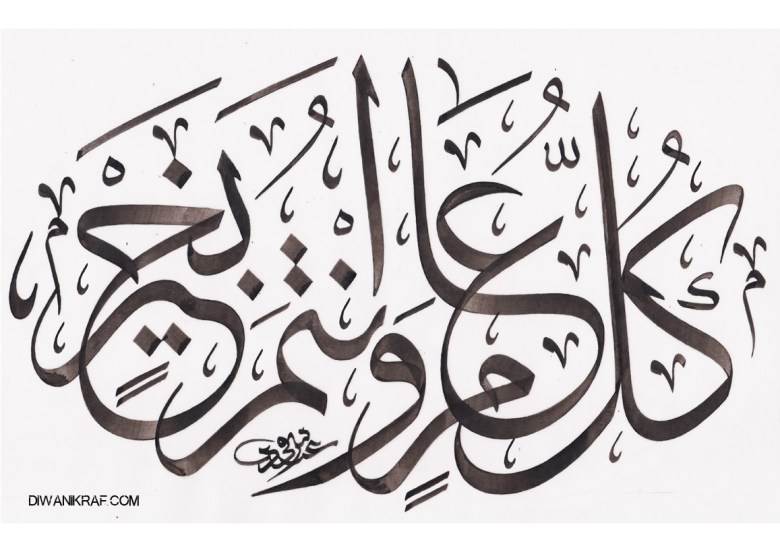 كُلُّ عَامٍ وَأَنْتُمْ بِخَيْرٍ
DIWANIKRAF.COM